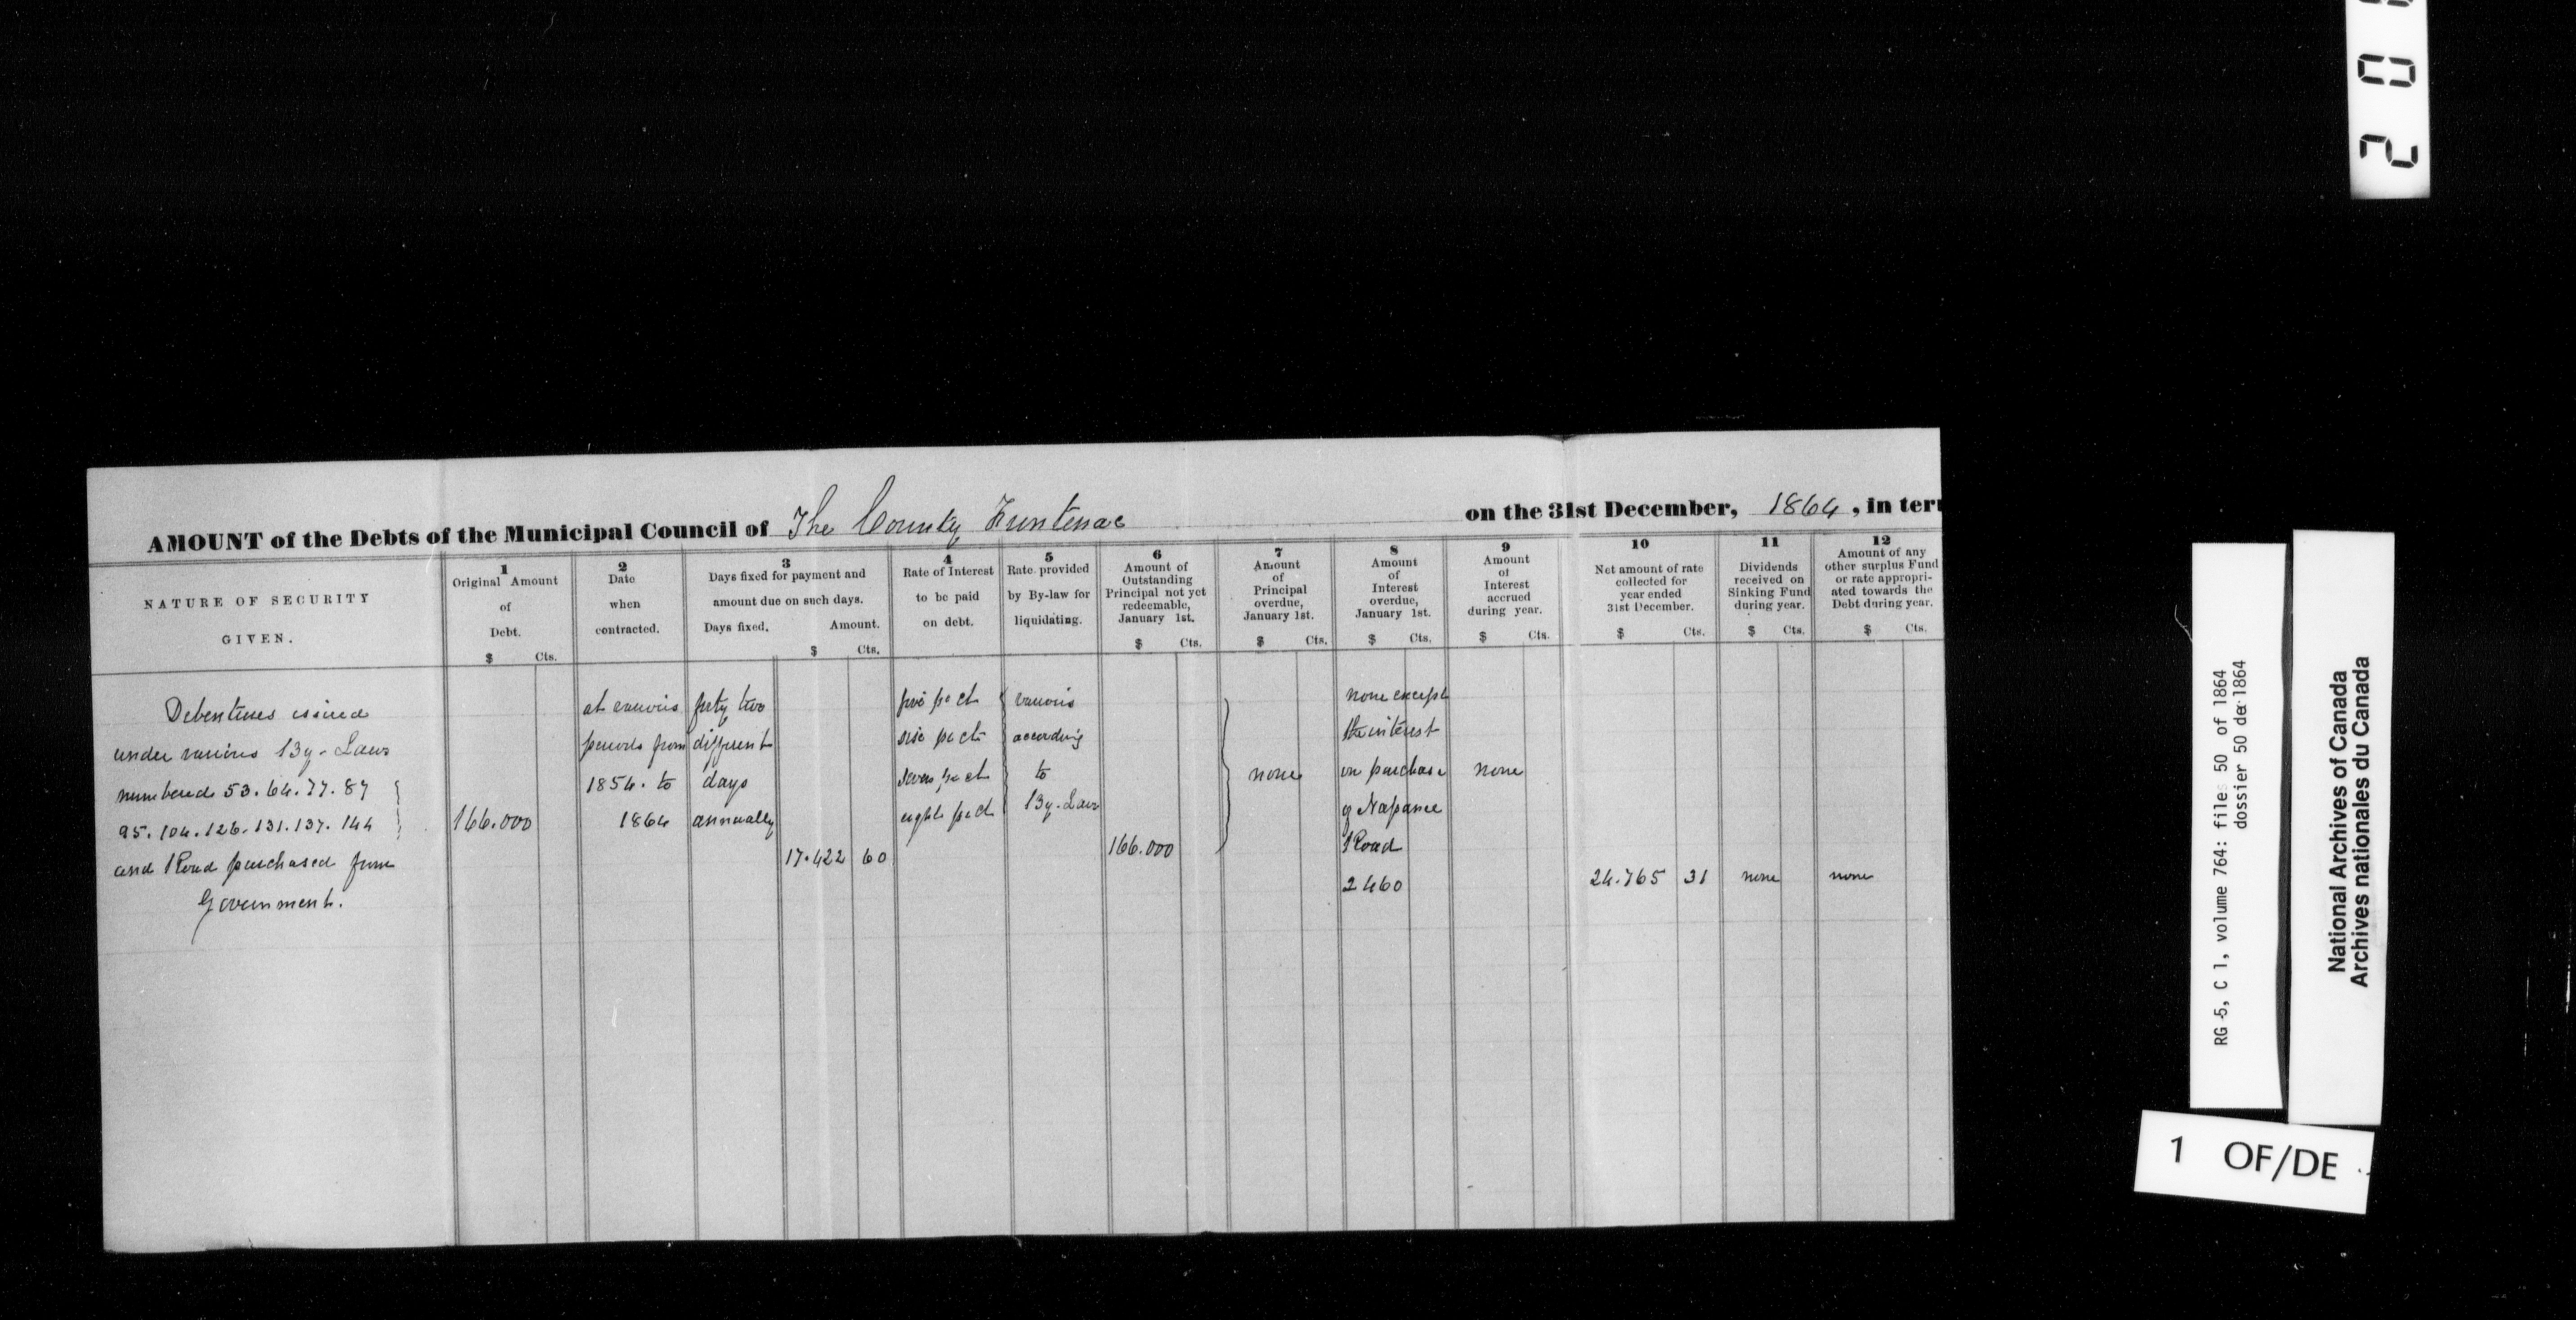 AMOUNT of the Debts of the Municipal Council of The County Frontenac on the 31st December, 1864, in ter
NATURE OF SECURITY
GIVEN.
1
Original Amount
of
Debt.
$ Cts.
2
Date
when
contracted.
3
Days fixed for payment and
amount due on such days.
Days fixed. Amount.
$ Cts.
4
Rate of Interest
to be paid
on debt.
5
Rate provided
by By-law for
liquidating.
6
Amount of
Outstanding
Principal not yet
redeemable,
January 1st.
$ Cts.
7
Amount
of
Principal
overdue,
January 1st.
$ Cts.
8
Amount
of
Interest
overdue,
January 1st.
$ Cts.
9
Amount
of
Interest
accrued
during year.
$ Cts.
10
Net amount of rate
collected for
year ended
31st December.
$ Cts.
11
Dividends
received on
Sinking Fund
during year.
$ Cts.
12
Amount of any
other surplus Fund
or rate appropri-
ated towards the
Debt during year.
$ Cts.
Debentures issued
under various By-Laws
numbered 53. 64. 77. 87
95. 104. 126. 131. 137. 144
and Road purchased from
Government.
166.000
at various
periods from
1854. to
1864
forty two
different
days
annually
17.422 60
five p ct
six p ct
seven p ct
eight p ct
various
according
to
By-Laws
166.000
none
none except
the interest
on purchase
of Napanee
Road
2460
none
24.765 31
none
none
2 0
RG 5, C 1, volume 764: files 50 of 1864
dossier 50 de 1864
National Archives of Canada
Archives nationales du Canada
1 OF/DE